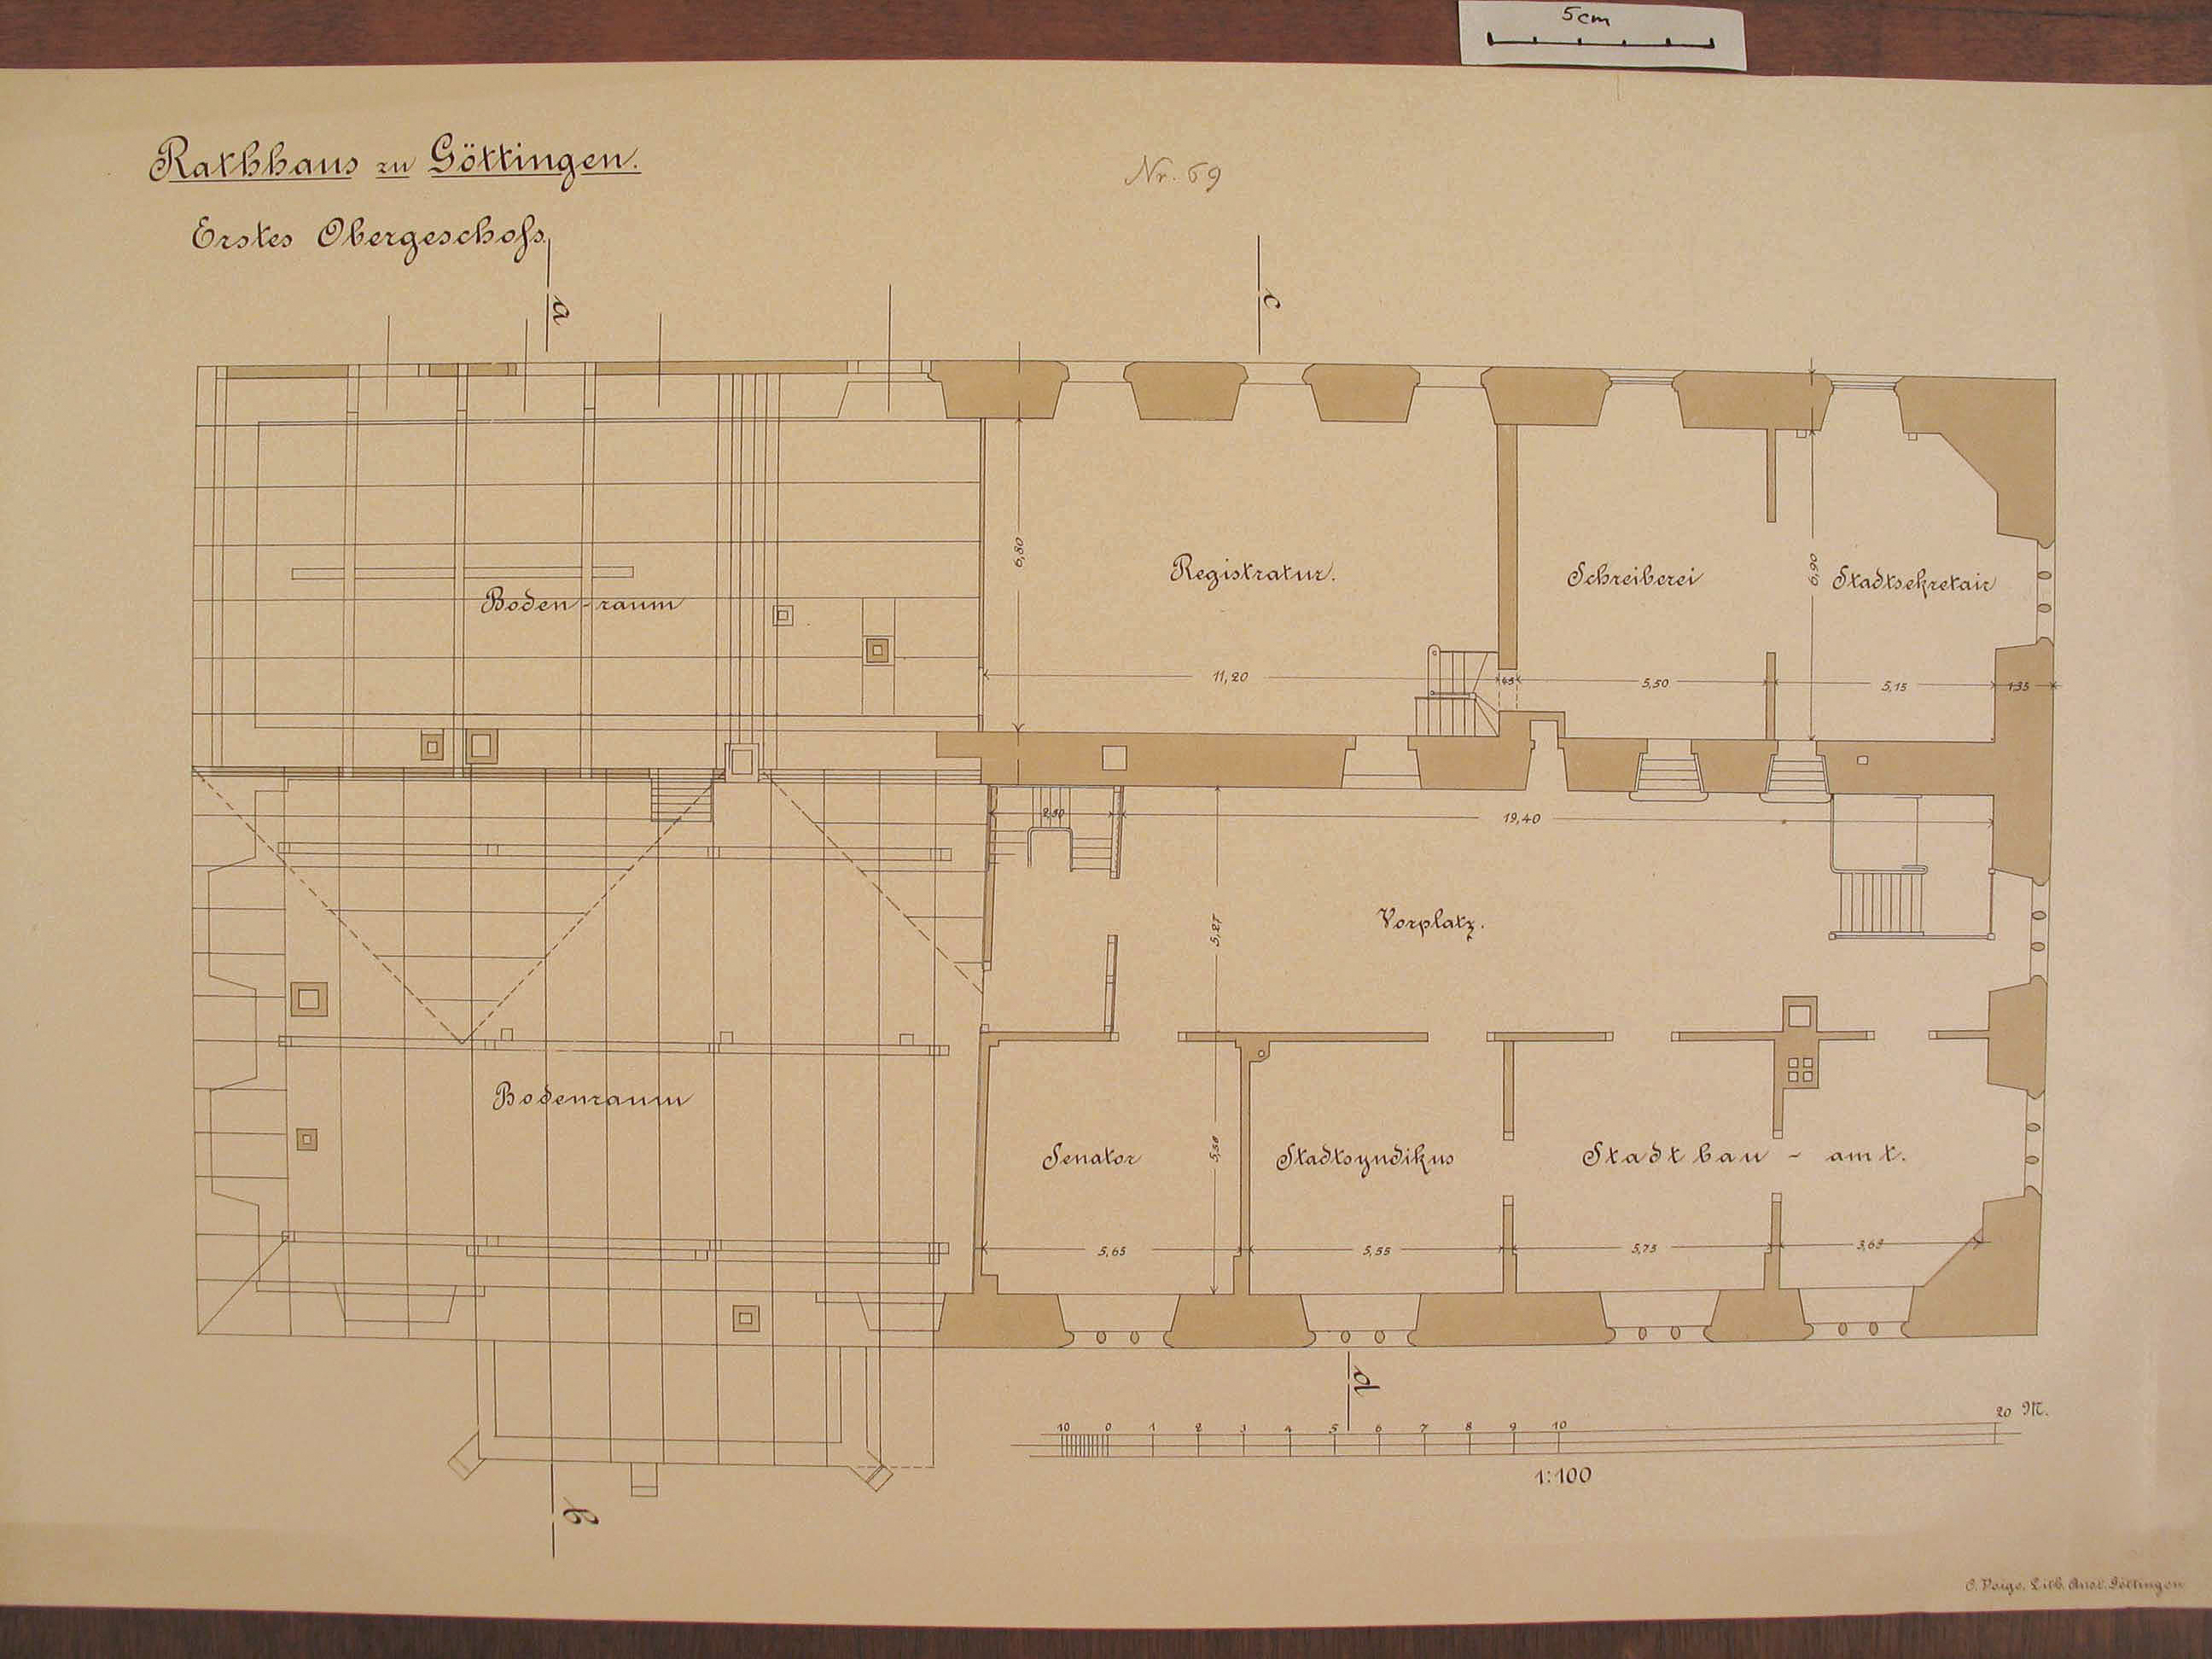 5cm
Rathhaus zu Göttingen.
Nr. 69
Erstes Obergeschoſs.
a
c
6,80
Registratur.
Schreiberei
6,90
Stadtsekretair
Boden-raum
11,20
45
5,50
5,15
1,35
2,80
19,40
5,27
Vorplatz.
Bodenraum
Senator
5,58
Stadtsyndikus
Stadtbau-amt.
5,65
5,55
5,75
3,65
d
10 0 1 2 3 4 5 6 7 8 9 10 20 M.
1:100
b
Lith. Anst. Göttingen